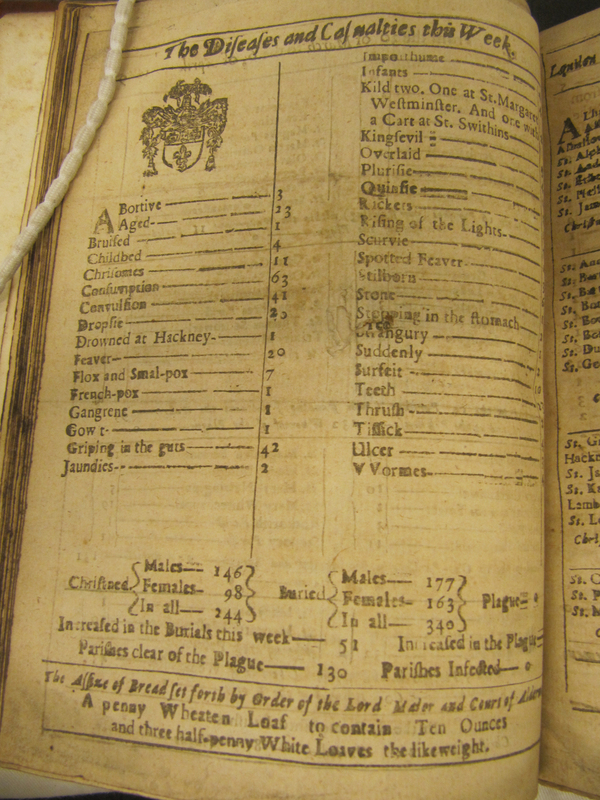 The Diſeaſes and Caſualties this Week.
ABortive — 3
Aged — 23
Bruiſed — 1
Childbed — 4
Chriſomes — 11
Conſumption — 63
Convulſion — 41
Dropſie — 20
Drowned at Hackney — 1
Feaver — 20
Flox and Smal-pox — 7
French-pox — 1
Gangrene — 1
Gowt — 1
Griping in the guts — 42
Jaundies — 2
Impoſthume
Infants
Kild two. One at St. Margaret
Weſtminſter. And one with
a Cart at St. Swithins
Kingſevil
Overlaid
Pluriſie
Quinſie
Rickets
Riſing of the Lights
Scurvie
Spotted Feaver
Stilborn
Stone
Stopping in the ſtomach
Strangury
Suddenly
Surfeit
Teeth
Thruſh
Tiſſick
Ulcer
VVormes
Chriſtned { Males — 146 Females — 98 In all — 244 }
Buried { Males — 177 Females — 163 In all — 340 } Plague — 0
Increaſed in the Burials this week — 51 Increaſed in the Plague
Pariſhes clear of the Plague — 130 Pariſhes Infected — 0
The Aſſize of Bread ſet forth by Order of the Lord Maior and Court of
A penny Wheaten Loaf to contain Ten Ounces
and three half-penny White Loaves the like weight.
London